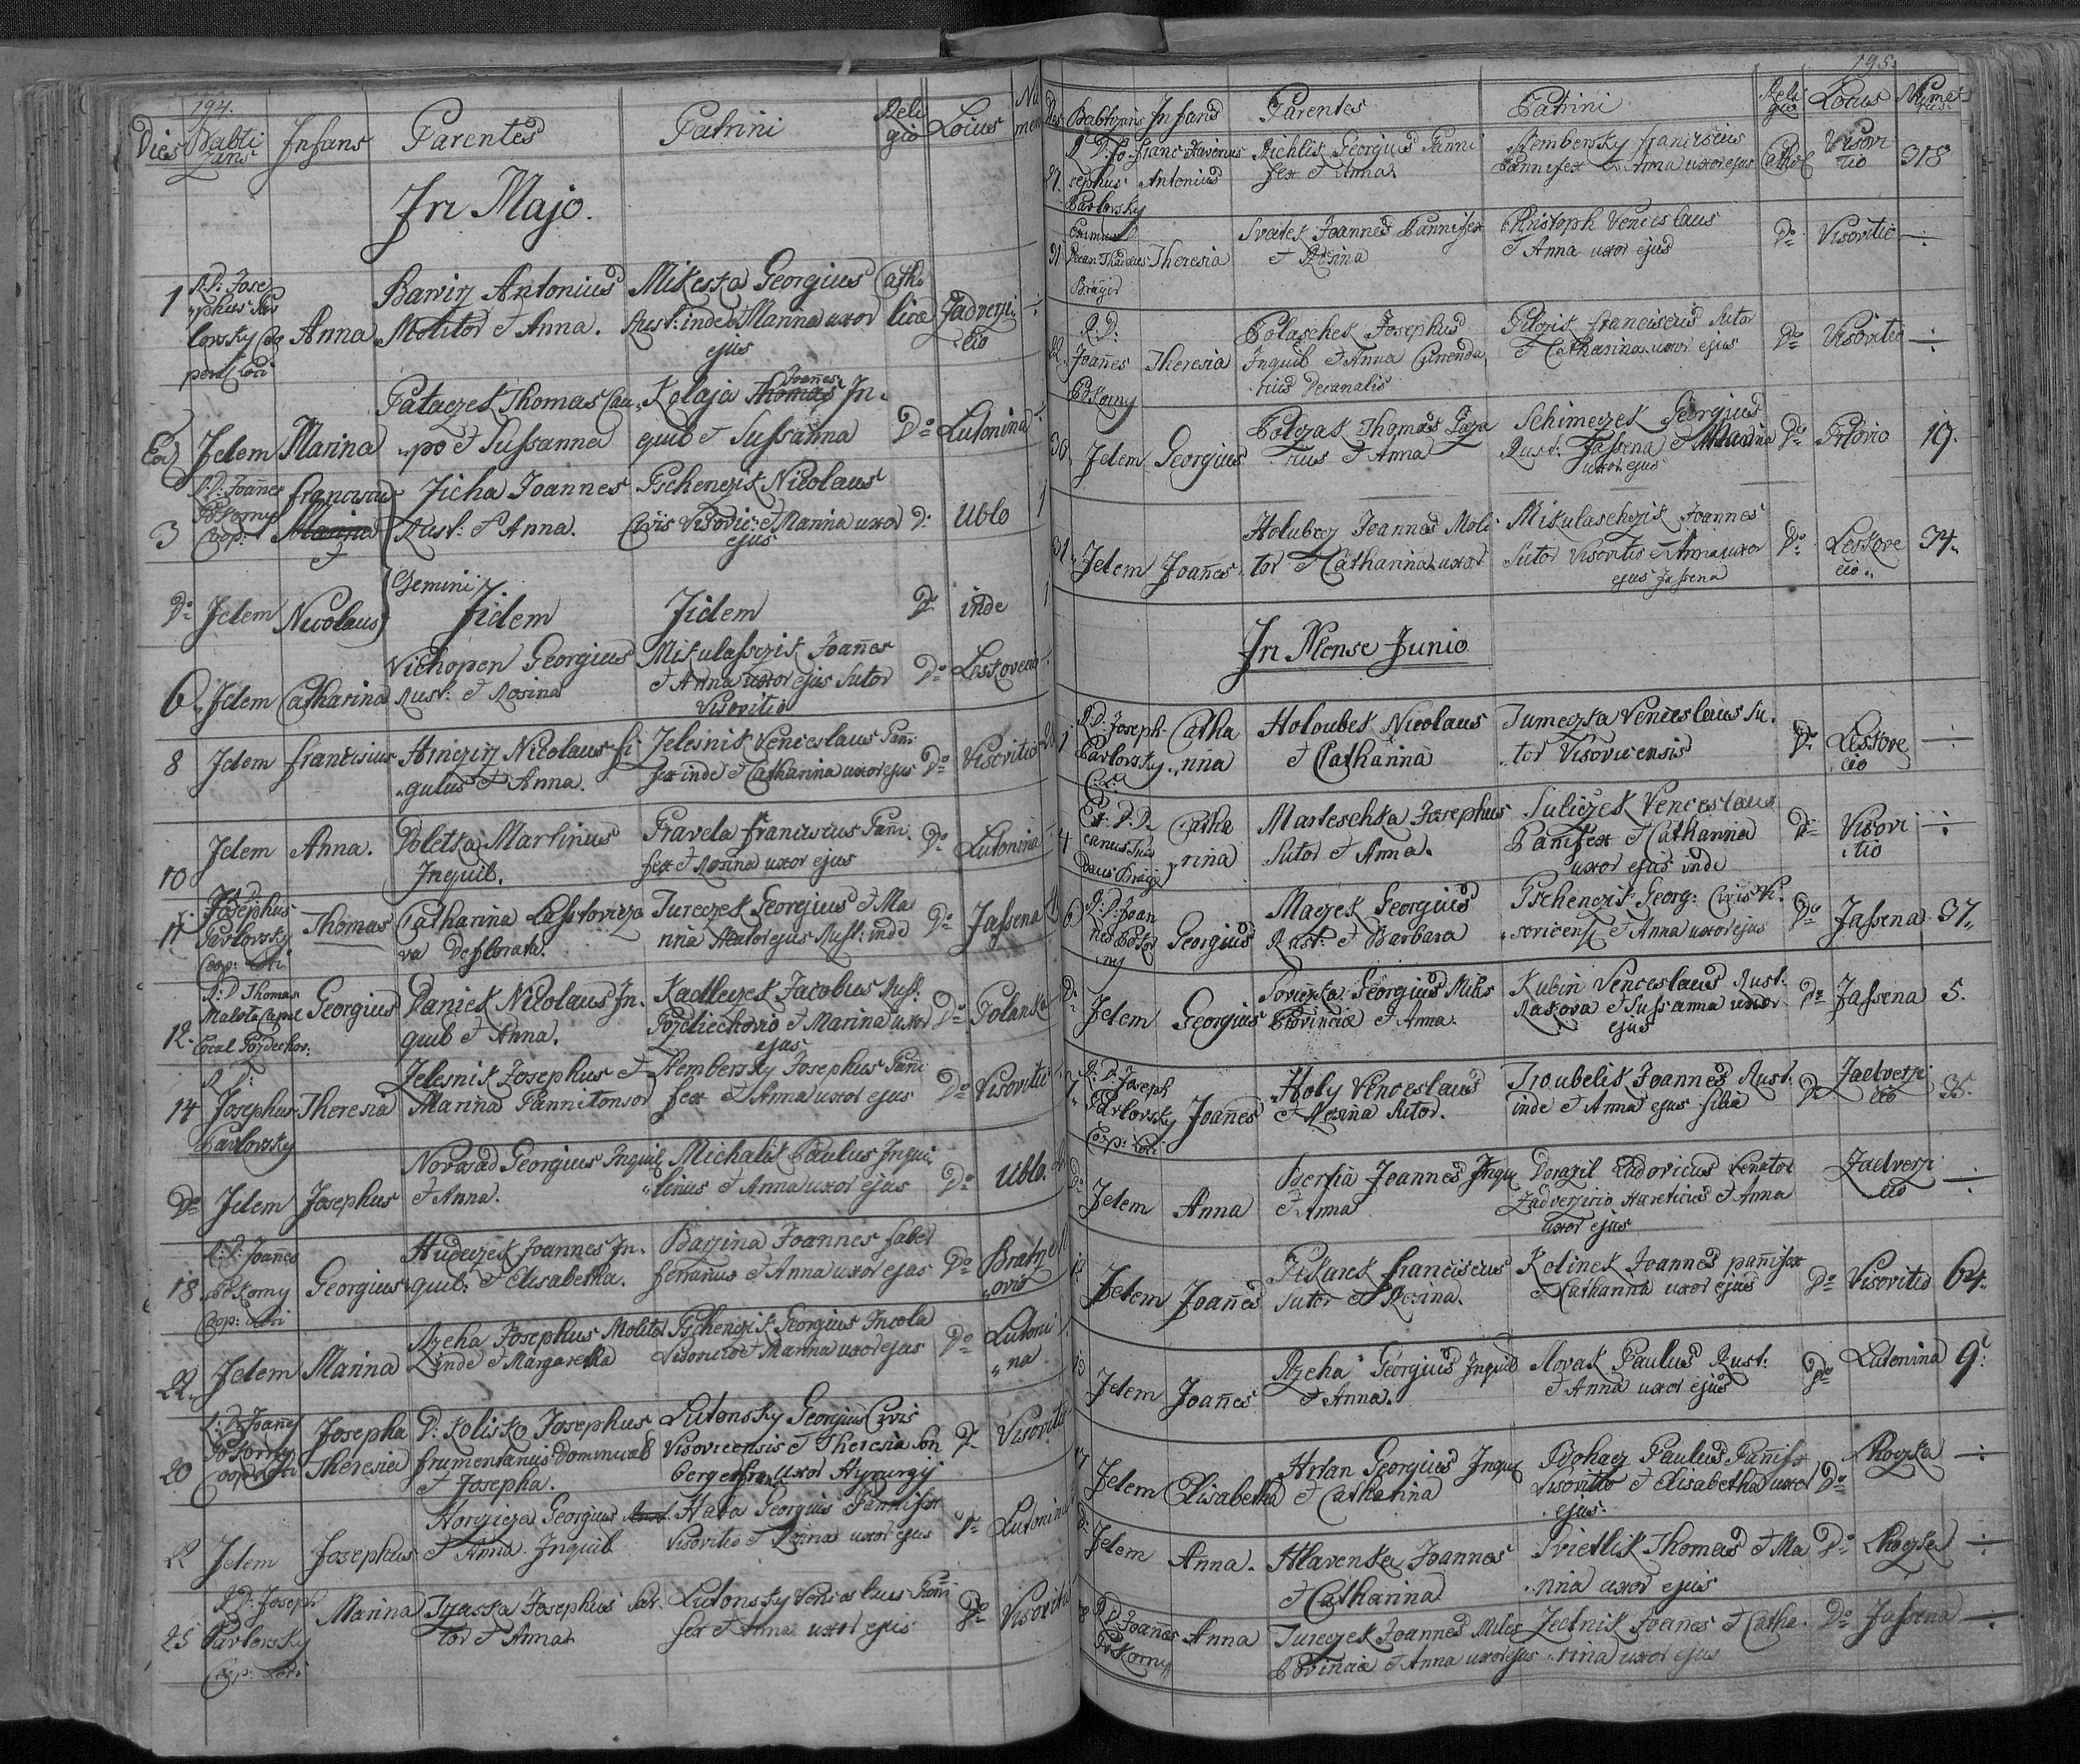 194.
Dies Babtizans Infans Parentes Patrini Religio Locus Numer
In Majo.
1 R.D. Josephus Pavlovsky Coop. Loci Anna
Molitor et Anna.
Mikeska Georgius
Rust: inde et Marina uxor
ejus
Catholicae
Eod Idem Marina
Pataczek Thomas Caupo et Sussanna
Kolaja Thomas Joañes Inquil et Sussanna
Do Lutonina
3 R.D. Joañes Pokorny Coop: Franciscus Marina et
Zicha Joannes
Rust: et Anna.
Pschenczik Nicolaus
Civis Visovic: et Marina uxor
ejus
D: Ublo 1
Do Idem Nicolaus
Gemini
Iidem
Iidem
Do inde 1
6 Idem Catharina
Vichopen Georgius
Rust: et Rosina
Mikulassczik Joañes
et Anna uxor ejus Sutor
Visovitio
Do Leskovecio
8 Idem Franciscus
Hrnczirz Nicolaus figulus et Anna.
Zelesnik Venceslaus Pañifex inde et Catharina uxor ejus
Do Visovitio
10 Idem Anna.
Doletka Martinus
Inquil.
Gravela Franciscus Pañifex et Rosina uxor ejus
Do Lutonina
11 R.D. Josephus Pavlovsky Coop: Loci Thomas
Catharina
va Deflorata.
Jureczek Georgius et Marina uxor ejus Rust: inde
Do Jassena
12. R:D Thomas Georgius
Daniek Nicolaus Inquil et Anna.
Kadleczek Jacobus Rust:
Pozdiechovio et Marina uxor
ejus
Do Polanka
14 R.D. Josephus Pavlovsky Theresia
Zelesnik Josephus et
Marina Pannitonsor
Stembersky Josephus Pañifex et Anna uxor ejus
Do Visovitio
Do Idem Josephus
Novosad Georgius Inquil
et Anna.
Michalik Paulus Inquilinus et Anna uxor ejus
Do Ublo.
18. R:D: Joañes Pokorny Coop: Loci Georgius
Hudeczek Joannes Inquil: et Elisabetha.
Barzina Joannes faber
ferrarius et Anna uxor ejus
Do Bratrzovio
22. Idem Marina
Rzeha Josephus Molitor
inde et Margaretha
Pschenczik Georgius Incola
Visovicio et Marina uxor ejus
Do Lutonina
20 R:D: Joañes Pokorny Coop: Loci Josepha Theresia
D: Kolisko Josephus
frumentarius Dominical
et Josepha.
Lutonsky Georgius Civis
Visovicensis et Theresia
uxor Hyrurgi
D: Visovitio
22 Idem Josephus
Georgius
et Anna Inquil
Hava Georgius Pannifex
Visovitio et Rosina uxor ejus
Do Lutonina
25 R.D. Joseph: Pavlovsky Coop: Loci Marina
Josephus Sartor et Anna
Lutonsky Venceslaus Pañifex et Anna uxor ejus
Do Visovitio
195.
Dies Babtizans Infans Parentes Patrini Religio Locus Numerus
27. R.D. Josephus Pavlovsky Franc. Xaverius Antonius
Richlik Georgius Pannifex et Anna
Stembersky Franciscus
Pannifex et Anna uxor ejus
Cathol
Visovitio
318
31 Decan Thadaeus Theresia
Svatek Joannes Pannifex
et Rosina
Christoph Venceslaus
et Anna uxor ejus
Do Visovitio
22. R:D: Joañes Pokorny Theresia
Polaschek Josephus
Inquil et Anna
Decanalis
Pilczik Franciscus Sutor
et Catharina uxor ejus
Do Visovitio
30. Idem Georgius
Polczak Thomas
et Anna
Schimeczek Georgius
Rust. Jassena et Marina
uxor ejus
Do Prlovio 19.
31. Idem Joañes
Holubecz Joannes Molitor et Catharina uxor
Mikulaschczik Joannes
Sutor Visovitio et Anna uxor
ejus Jassena
Do Leskovecio. 34.
In Mense Junio
1 R.D. Joseph Pavlovsky Catharina
Holoubek Nicolaus
et Catharina
Jumeczka Venceslaus Sutor Visovicensis
Do Leskovecio
4 Catharina
Marteschka Josephus
Sutor et Anna.
Suliczek Venceslaus
Panifex et Catharina
uxor ejus inde
Do Visovitio
6 R:D: Joannes Pokorny Georgius
Maczek Georgius
Rust: et Barbara
Pschenczik Georg: Civis Visovicens et Anna uxor ejus
Do Jassena 37.
Do Idem Georgius
Georgius Miles
Provinciae et Anna.
Kubin Venceslaus Rust:
Rakova et Sussanna uxor
ejus
Do Jassena 5.
7. R.D. Joseph Pavlovsky Coop: Loci Joañes
Holy Venceslaus
et Rosina Sutor.
Troubelik Joannes Rust.
inde et Anna ejus filia
Do Zadverzicio 35.
Do Idem Anna
Joannes Inqu
et Anna
Dorazil Ludovicus Senator
Zadverzicio Haereticus et Anna
uxor ejus
Zadverzicio
12 Idem Joañes
Pekarek Franciscus
Sutor et Rosina.
Kolinek Joannes pañifex
et Catharina uxor ejus
Do Visovitio 64.
13 Idem Joañes
Rzeha Georgius Inquil
et Anna.
Slovak Paulus Rust:
et Anna uxor ejus
Do Lutonina 9.
17 Idem Elisabetha
Hrlan Georgius Inqui
et Catharina
Bohacz Paulus Pañifx
Visovitio et Elisabetha uxor
ejus.
Do Lhoczka
Do Idem Anna.
Hlavenka Joannes
et Catharina
Svietlik Thomas et Marina uxor ejus
Do Lhoczka
R.D. Joañes Pokorny Anna
Jureczek Joannes Miles
Provinciae et Anna uxor ejus
Zednik Joañes et Catharina uxor ejus
Do Jassena